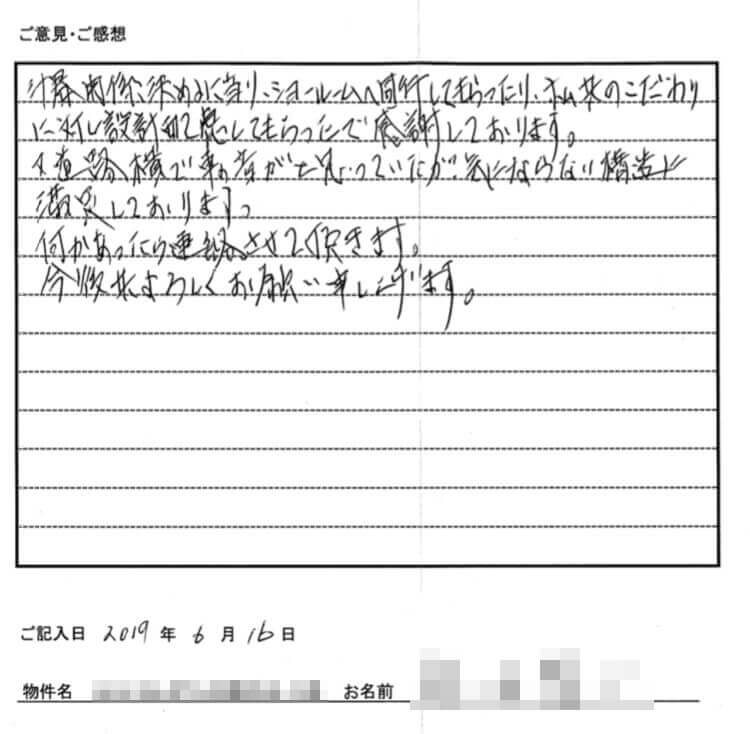 ご意見・ご感想
関係決めるに当り、ショールームへ同行してもらったり、私共のこだわり
に対し設計して感謝しております。
又道路横で車の音がと思っていたが気にならない構造に
満足しております。
何かあったら連絡させて頂きます。
今後共よろしくお願い申し上げます。
ご記入日 2019 年 6 月 16 日
物件名 お名前